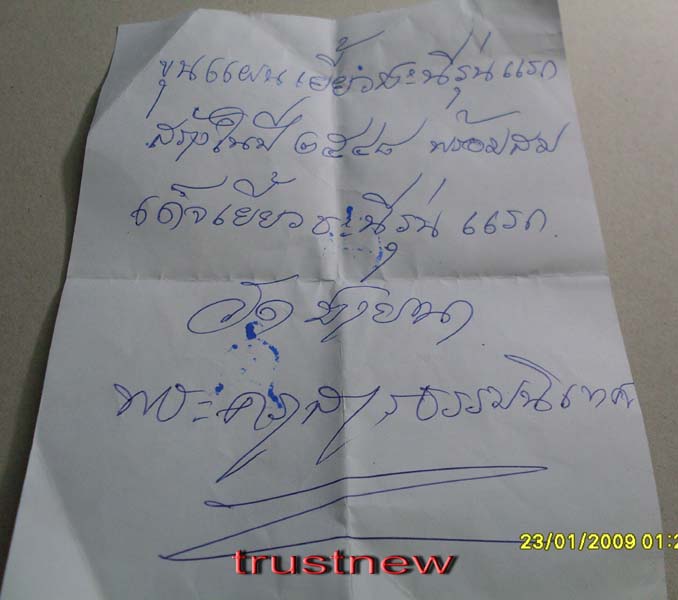 ขุนแผนเยี่ยวชะนีรุ่นแรก
สร้างในปี ๒๕๔๘ พร้อมสม
เด็จเยี่ยวชะนีรุ่น แรก
วัด
พระครูสุธรรมนิเทศ
23/01/2009 01:2
trustnew